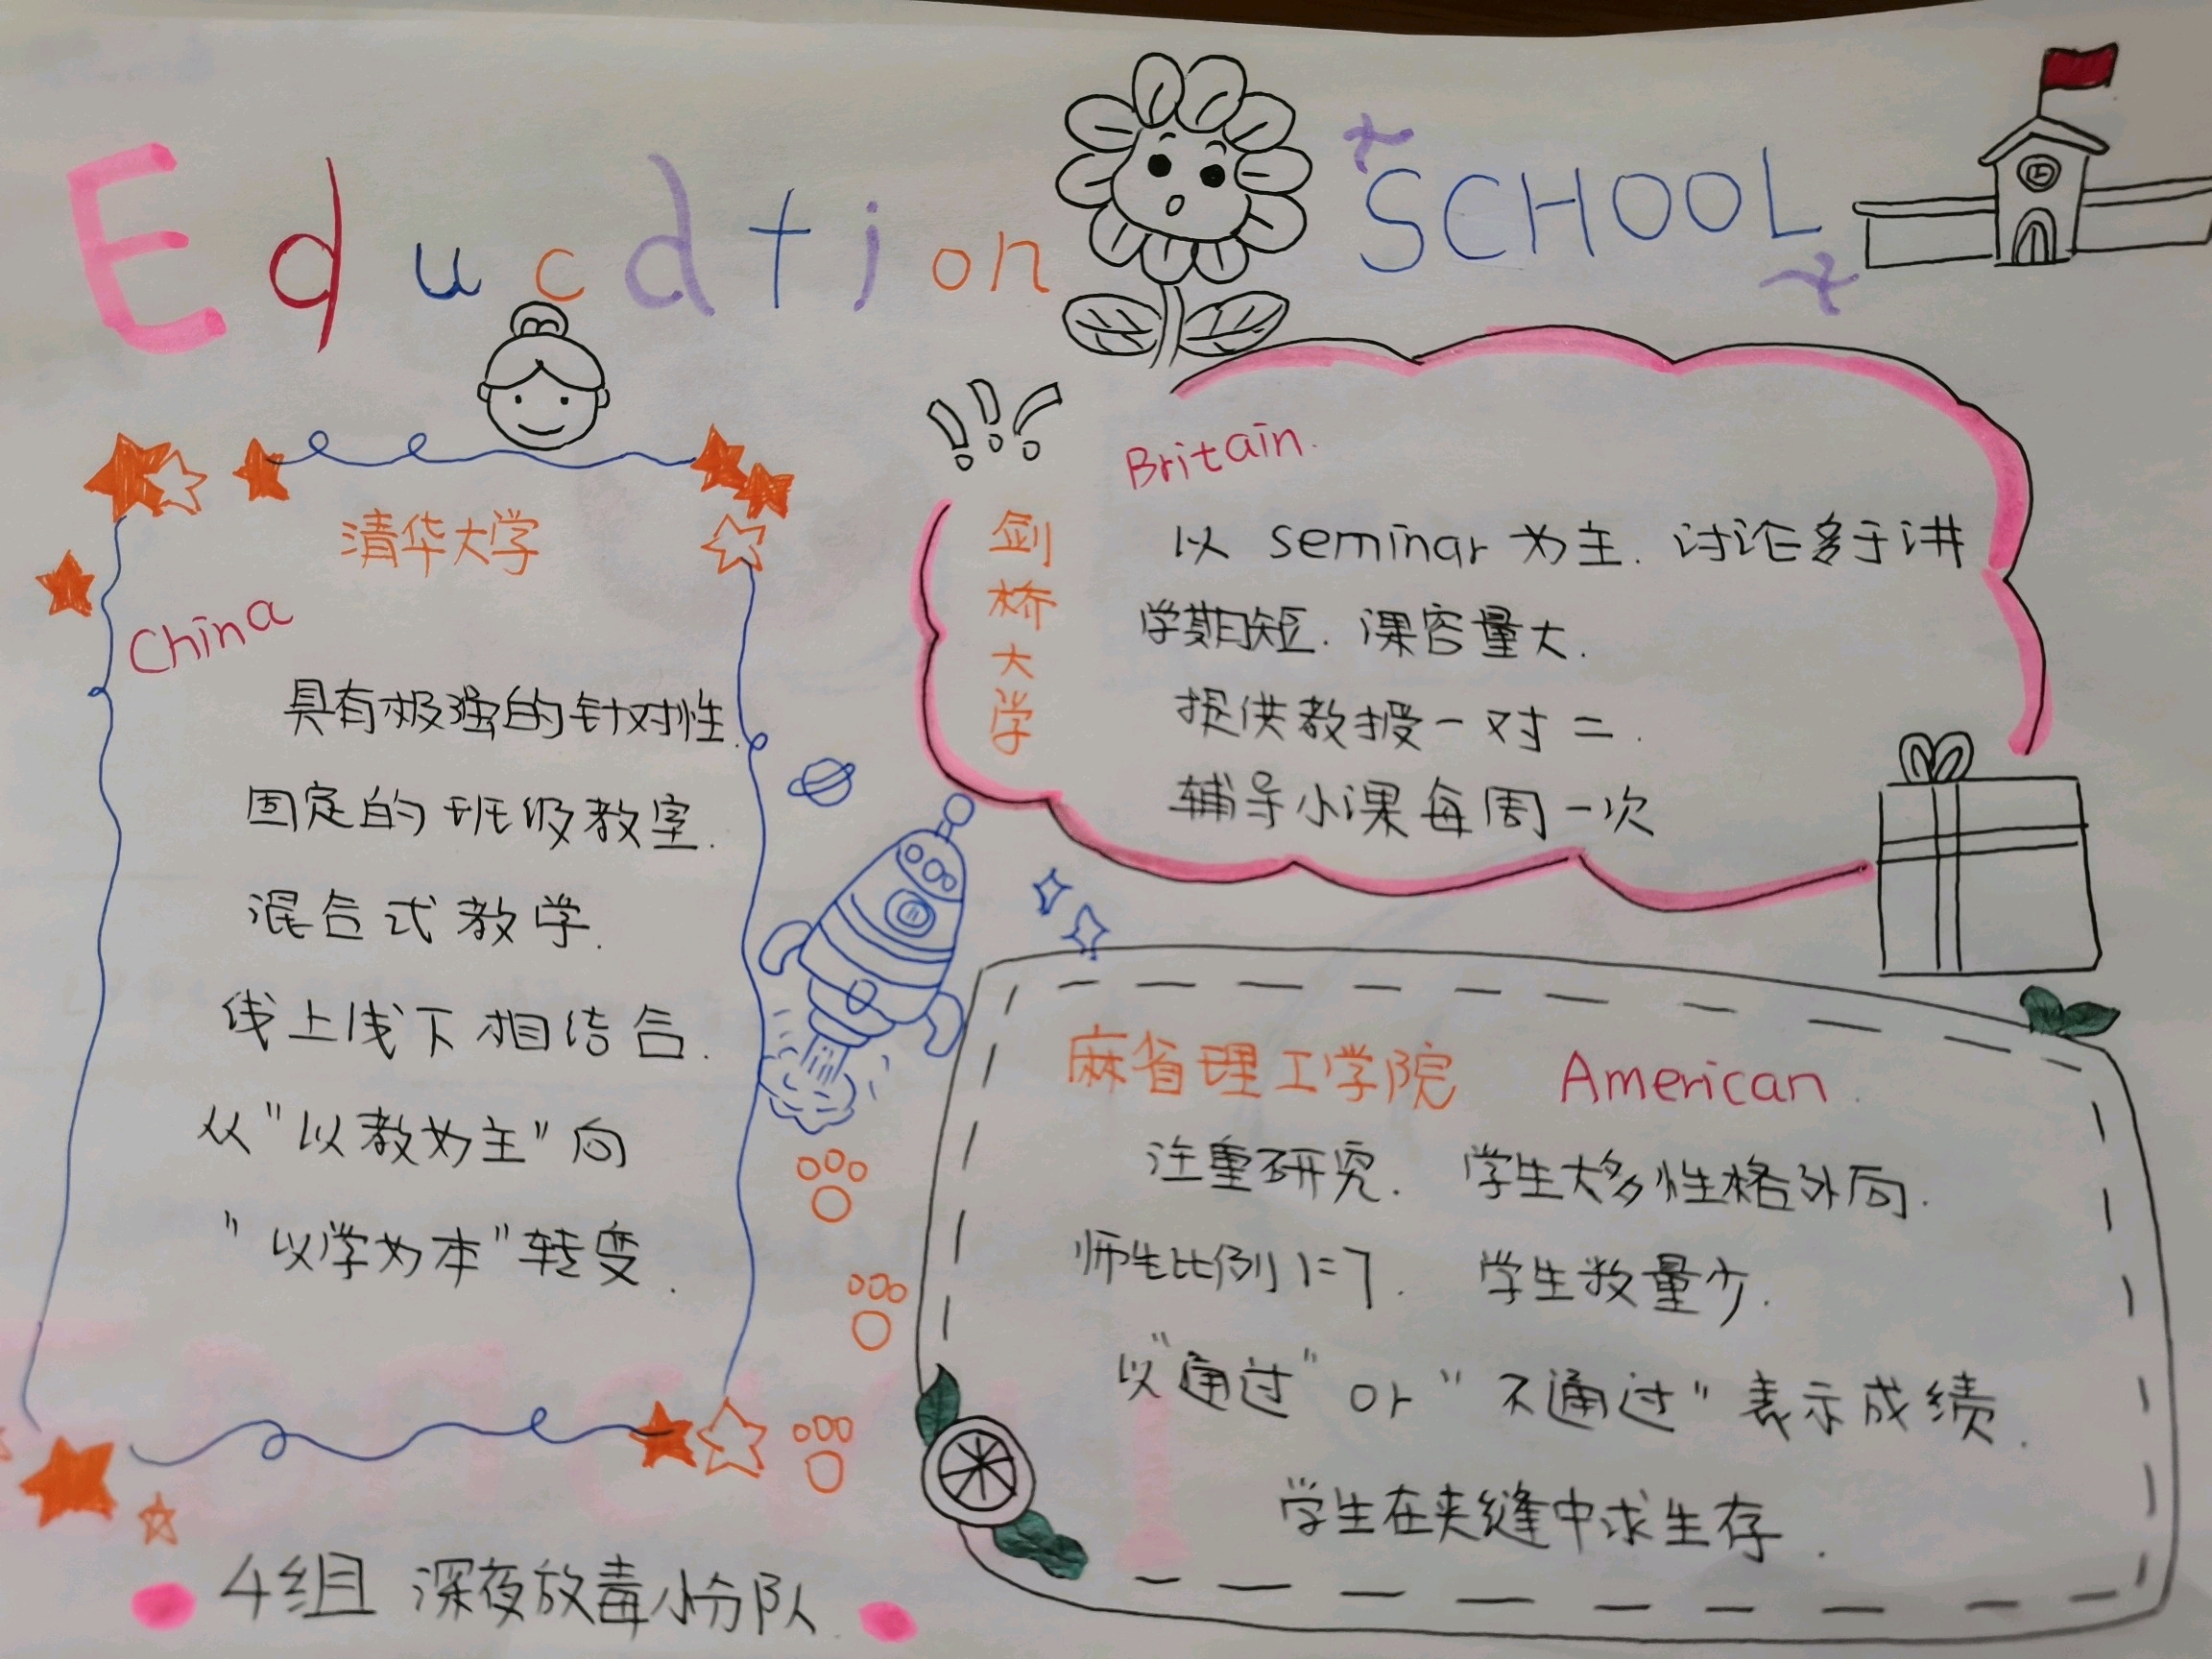 Education
SCHOOL
清华大学
China
具有极强的针对性.
固定的班级教室.
混合式教学.
线上线下相结合.
从"以教为主"向
"以学为本"转变.
!!!
剑桥大学
Britain.
以 seminar 为主. 讨论多于讲
学期短. 课容量大.
提供教授一对二.
辅导小课每周一次
麻省理工学院 American.
注重研究. 学生大多性格外向.
师生比例1:7. 学生数量少.
以"通过" or "不通过" 表示成绩.
学生在夹缝中求生存.
4组 深夜放毒小分队.